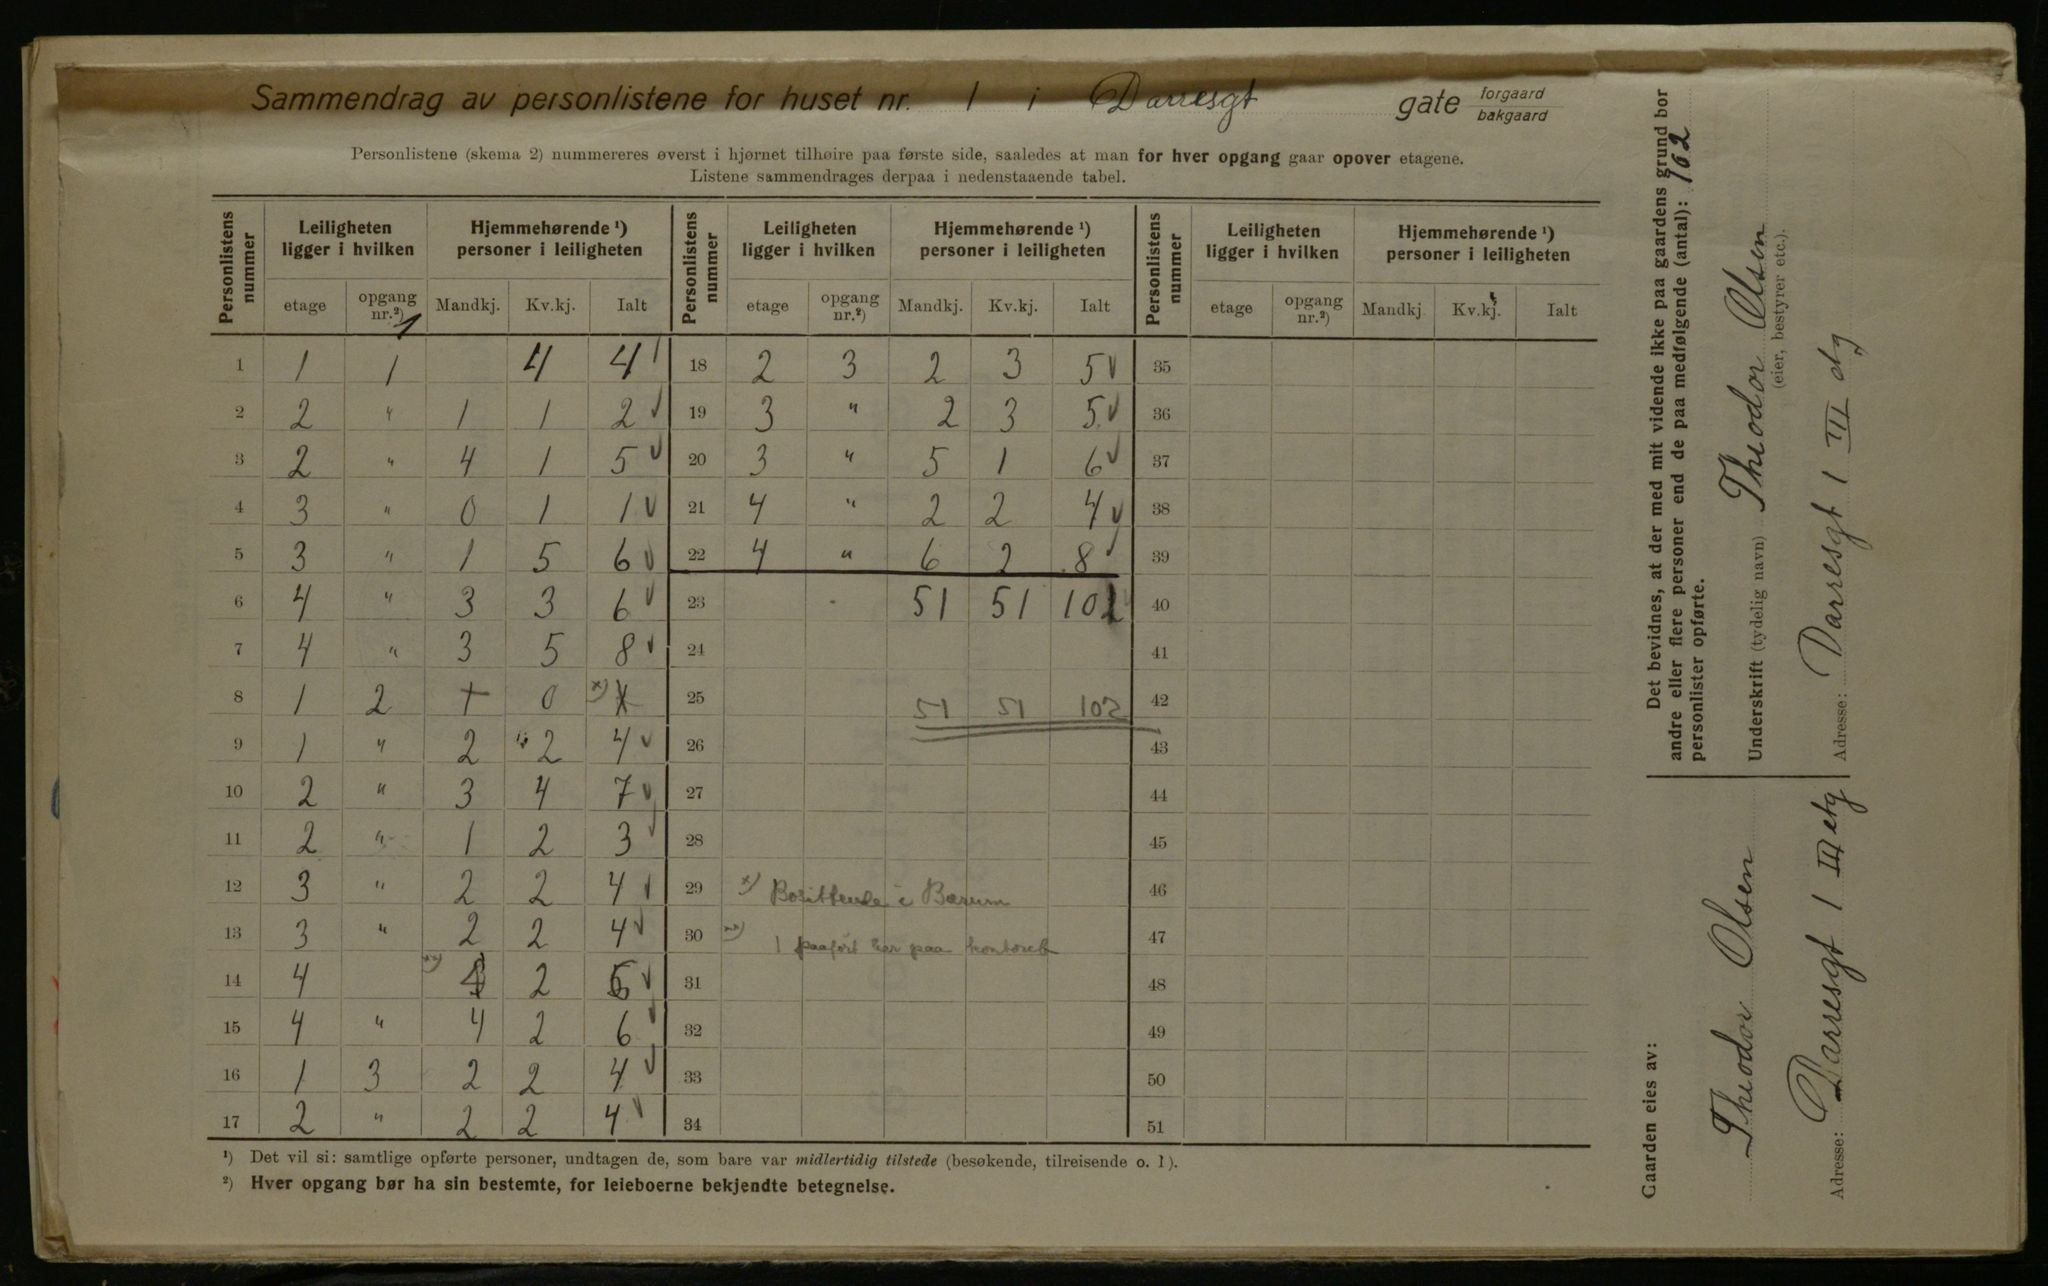 Sammendrag av personlistene for huset nr. 1 i Darresgt gate forgaard bakgaard
Personlistene (skema 2) nummereres øverst i hjørnet tilhøire paa første side, saaledes at man for hver opgang gaar opover etagene.
Listene sammendrages derpaa i nedenstaaende tabel.
Personlistens nummer | Leiligheten ligger i hvilken | Hjemmehørende ¹) personer i leiligheten | Personlistens nummer | Leiligheten ligger i hvilken | Hjemmehørende ¹) personer i leiligheten | Personlistens nummer | Leiligheten ligger i hvilken | Hjemmehørende ¹) personer i leiligheten
etage | opgang nr.²) | Mandkj. | Kv.kj. | Ialt | etage | opgang nr.²) | Mandkj. | Kv.kj. | Ialt | etage | opgang nr.²) | Mandkj | Kv.kj. | Ialt
1 | 1 | 1 | | 4 | 4 | 18 | 2 | 3 | 2 | 3 | 5 | 35
2 | 2 | " | 1 | 1 | 2 | 19 | 3 | " | 2 | 3 | 5 | 36
3 | 2 | " | 4 | 1 | 5 | 20 | 3 | " | 5 | 1 | 6 | 37
4 | 3 | " | 0 | 1 | 1 | 21 | 4 | " | 2 | 2 | 4 | 38
5 | 3 | " | 1 | 5 | 6 | 22 | 4 | " | 6 | 2 | 8 | 39
6 | 4 | " | 3 | 3 | 6 | 23 | | | 51 | 51 | 102 | 40
7 | 4 | " | 3 | 5 | 8 | 24 | 41
8 | 1 | 2 | | 0 | x) | 25 | | | 51 | 51 | 102 | 42
9 | 1 | " | 2 | 2 | 4 | 26 | 43
10 | 2 | " | 3 | 4 | 7 | 27 | 44
11 | 2 | " | 1 | 2 | 3 | 28 | 45
12 | 3 | " | 2 | 2 | 4 | 29 | x) Bosittende i Bærum | 46
13 | 3 | " | 2 | 2 | 4 | 30 | xx) 1 paaført her paa kontoret | 47
14 | 4 | | xx) | 2 | | 31 | 48
15 | 4 | " | 4 | 2 | 6 | 32 | 49
16 | 1 | 3 | 2 | 2 | 4 | 33 | 50
17 | 2 | " | 2 | 2 | 4 | 34 | 51
¹) Det vil si: samtlige opførte personer, undtagen de, som bare var midlertidig tilstede (besøkende, tilreisende o. l).
²) Hver opgang bør ha sin bestemte, for leieboerne bekjendte betegnelse.
Det bevidnes, at der med mit vidende ikke paa gaardens grund bor
andre eller flere personer end de paa medfølgende (antal): 102
personlister opførte.
Underskrift (tydelig navn) Theodor Olsen
(eier, bestyrer etc.).
Adresse: Darresgt 1 III
Gaarden eies av:
Theodor Olsen
Adresse: Darresgt 1 III etg